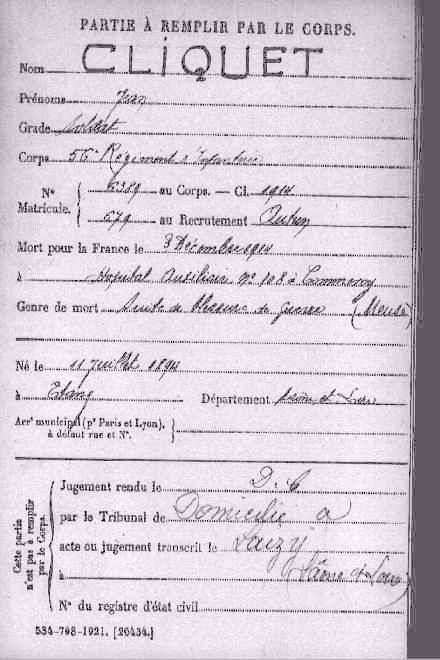 PARTIE À REMPLIR PAR LE CORPS.
Nom CLIQUET
Prénoms Jean
Grade Soldat
Corps 56e Régiment d'Infanterie
N° Matricule. { 5389 au Corps. — Cl. 1914
579 au Recrutement Autun
Mort pour la France le 3 Décembre 1914
à Hôpital Auxiliaire N° 108 à Commercy
Genre de mort Suite de blessures de guerre (Meuse)
Né le 11 Juillet 1894
à Etang Département Saône et Loire
Arr' municipal (p' Paris et Lyon),
à défaut rue et N°.
Cette partie
n'est pas à remplir
par le Corps.
Jugement rendu le D.C
par le Tribunal de Domicilié à
acte ou jugement transcrit le Laizy
à (Saône et Loire)
N° du registre d'état civil
534-708-1921. [26434.]